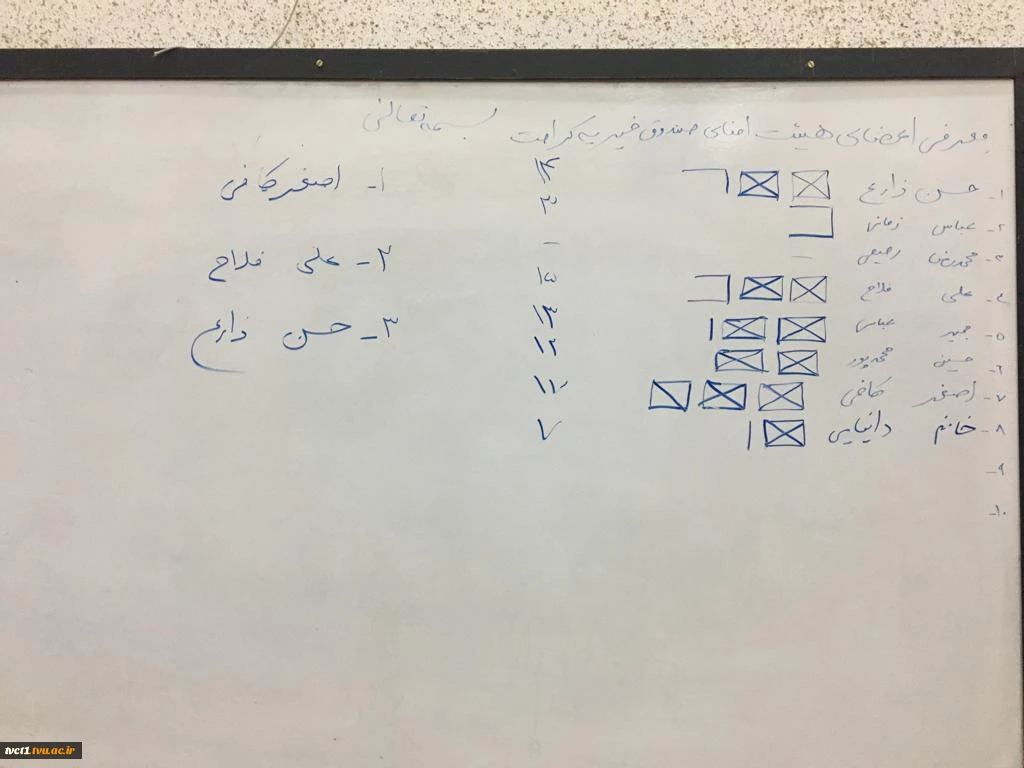 بسمه تعالی
معرفی اعضای هیئت امنای صندوق خیریه کرامت
۱- حسن زارع ۱۴
۲- عباس زمانی ۳
۳- محمدرضا رحیمی -
۴- علی فلاح ۱۵
۵- مجید عباسی ۱۳
۶- حسین محمدپور ۱۲
۷- اصغر کافی
۸- خانم دانیایی ۷
۹-
۱۰-
۱- اصغر کافی
۲- علی فلاح
۳- حسن زارع
tvct1.tvu.ac.ir